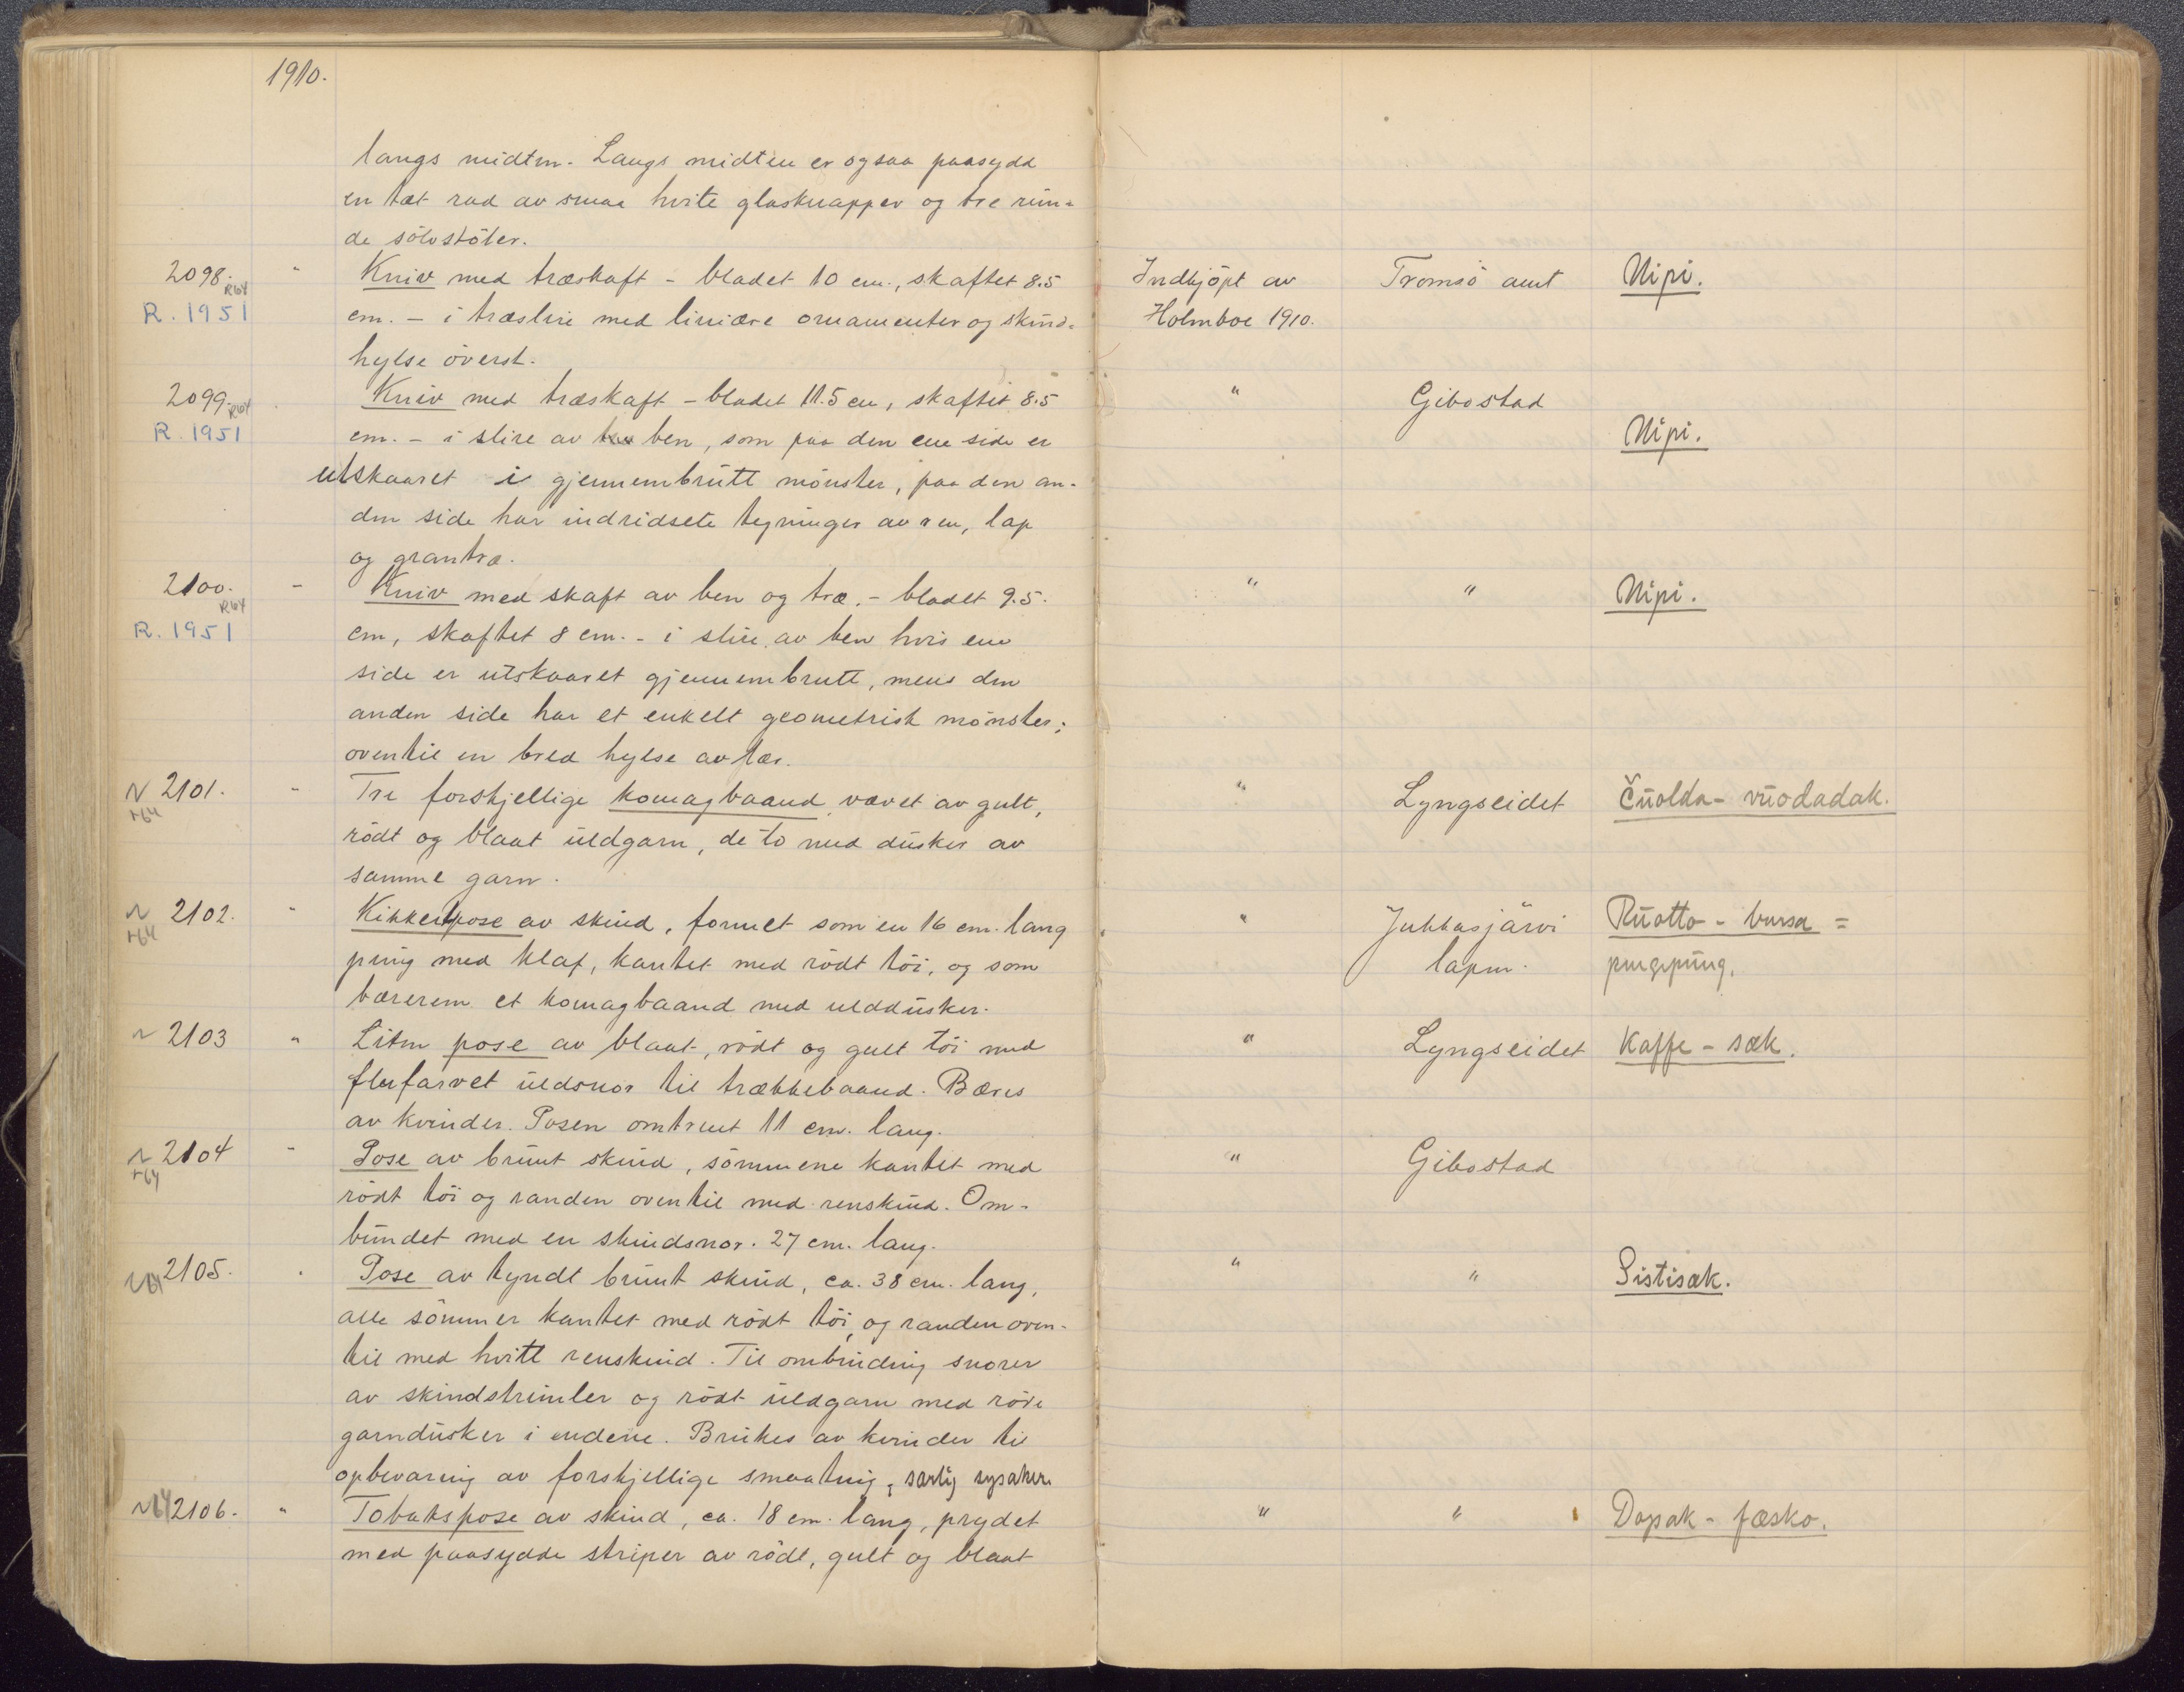 1910.
langs midten. Langs midten er ogsaa paasydd
en tæt rad av smaa hvite glasknapper og tre run-
de sölvstöler.
2098. R64 " Kniv med træskaft - bladet 10 cm., skaftet 8.5 Indkjöpt av Tromsö amt Nipi.
R. 1951 cm. - i træslire med liniære ornamenter og skind- Holmboe 1910.
hylse överst.
2099. R64 Kniv med træskaft - bladet 11.5 cm, skaftet 8.5 " Gibostad
R. 1951 cm. - i slire av ben, som paa den ene side er Nipi.
utskaaret i gjennembrutt mönster, paa den an-
den side har indridsete tegninger av ren, lap
og grantræ.
2100. R64 - Kniv med skaft av ben og træ. - bladet 9.5 " " Nipi.
R. 1951 cm, skaftet 8 cm. - i slire av ben hvis ene
side er utskaaret gjennembrutt, mens den
anden side har et enkelt geometrisk mönster;
oventil en bred hylse av lær.
N 2101. " Tre forskjellige komagbaand vævet av gult, " Lyngseidet Čuolda-vuodadak.
r64 rödt og blaat uldgarn, de to med dusker av
samme garn.
N 2102. " Kikkertpose av skind, formet som en 16 cm. lang " Jukkasjärvi Ruotto-bursa =
r64 pung med klaf, kantet med rödt töi, og som lapm. pengepung.
bærerem et komagbaand med ulddusker.
N 2103 " Liten pose av blaat, rödt og gult töi med " Lyngseidet Kaffe-sæk.
flerfarvet uldsnor til trækkebaand. Bæres
av kvinder. Posen omtrent 11 cm. lang.
N 2104 " Pose av brunt skind, sömmene kantet med " Gibostad
r64 rödt töi og randen oventil med renskind. Om-
bundet med en skindsnor. 27 cm. lang.
2105. " Pose av tyndt brunt skind, ca. 38 cm. lang, " " Sistisæk.
alle sömmer kantet med rödt töi, og randen oven-
til med hvitt renskind. Til ombinding snorer
av skindstrimler og rödt uldgarn med röde
garndusker i endene. Brukes av kvinder til
opbevaring av forskjellige smaating, særlig sysaker.
N64 2106. " Tobakspose av skind, ca. 18 cm. lang, prydet " " Dopak-fæsko.
med paasydde striper av rödt, gult og blaat